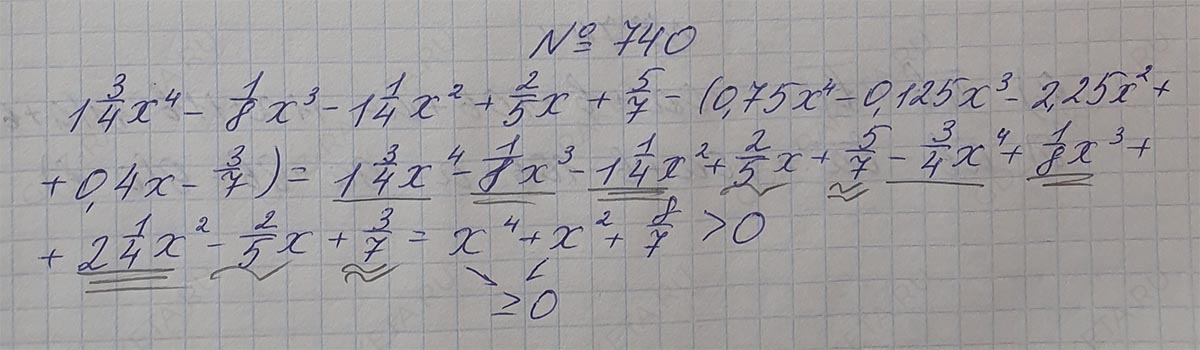 № 740
1 3/4 x⁴ - 1/8 x³ - 1 1/4 x² + 2/5 x + 5/7 - (0,75x⁴ - 0,125x³ - 2,25x² +
+ 0,4x - 3/7) = 1 3/4 x⁴ - 1/8 x³ - 1 1/4 x² + 2/5 x + 5/7 - 3/4 x⁴ + 1/8 x³ +
+ 2 1/4 x² - 2/5 x + 3/7 = x⁴ + x² + 8/7 > 0
≥ 0